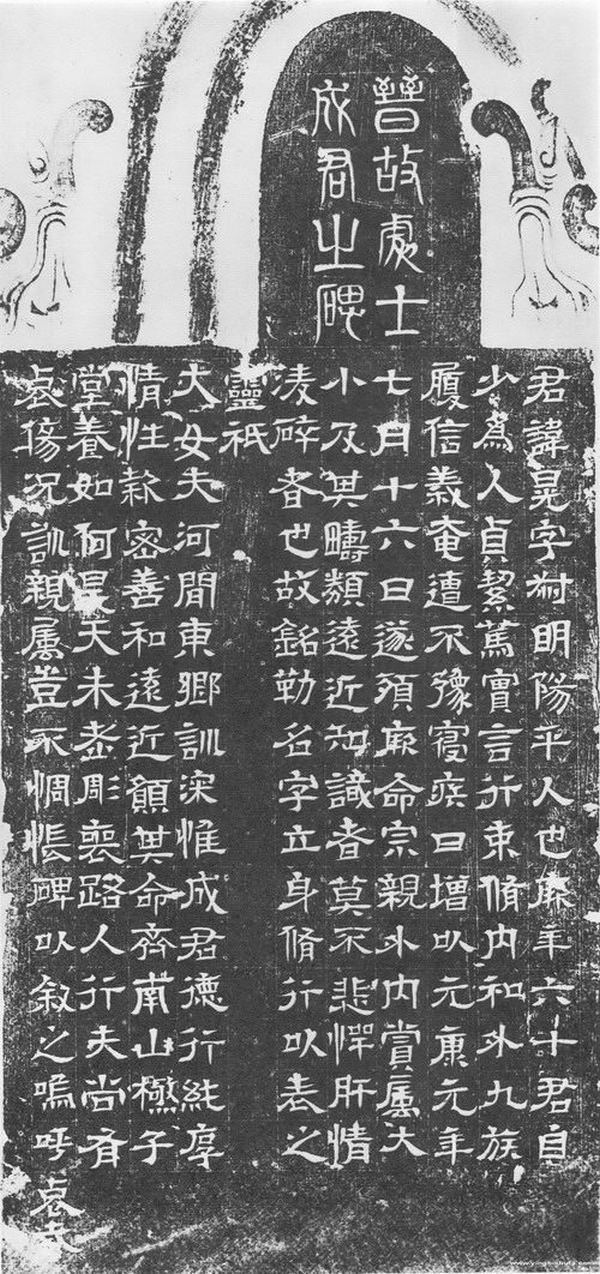 晉故處士
成君之碑
君諱晃字叔明陽平人也廉年六十君自
少爲人貞絜篤實言行束脩内和外九族
履信義奄遭不豫寑疾日增以元康元年
七月十六日遂殞厥命宗親外内賞屬大
小及其疇類遠近知識者莫不悲惲肝情
淩碎者也故銘勒名字立身脩行以表之
靈祇
大女夫河間東鄉訓深惟成君德行純厚
情性款密善和遠近願其命齊南山極子
堂養如何昊天未老彫喪路人行夫尚有
哀傷況訓親屬豈不惆悵碑以敘之嗚呼哀哉
www.yingbishufa.com